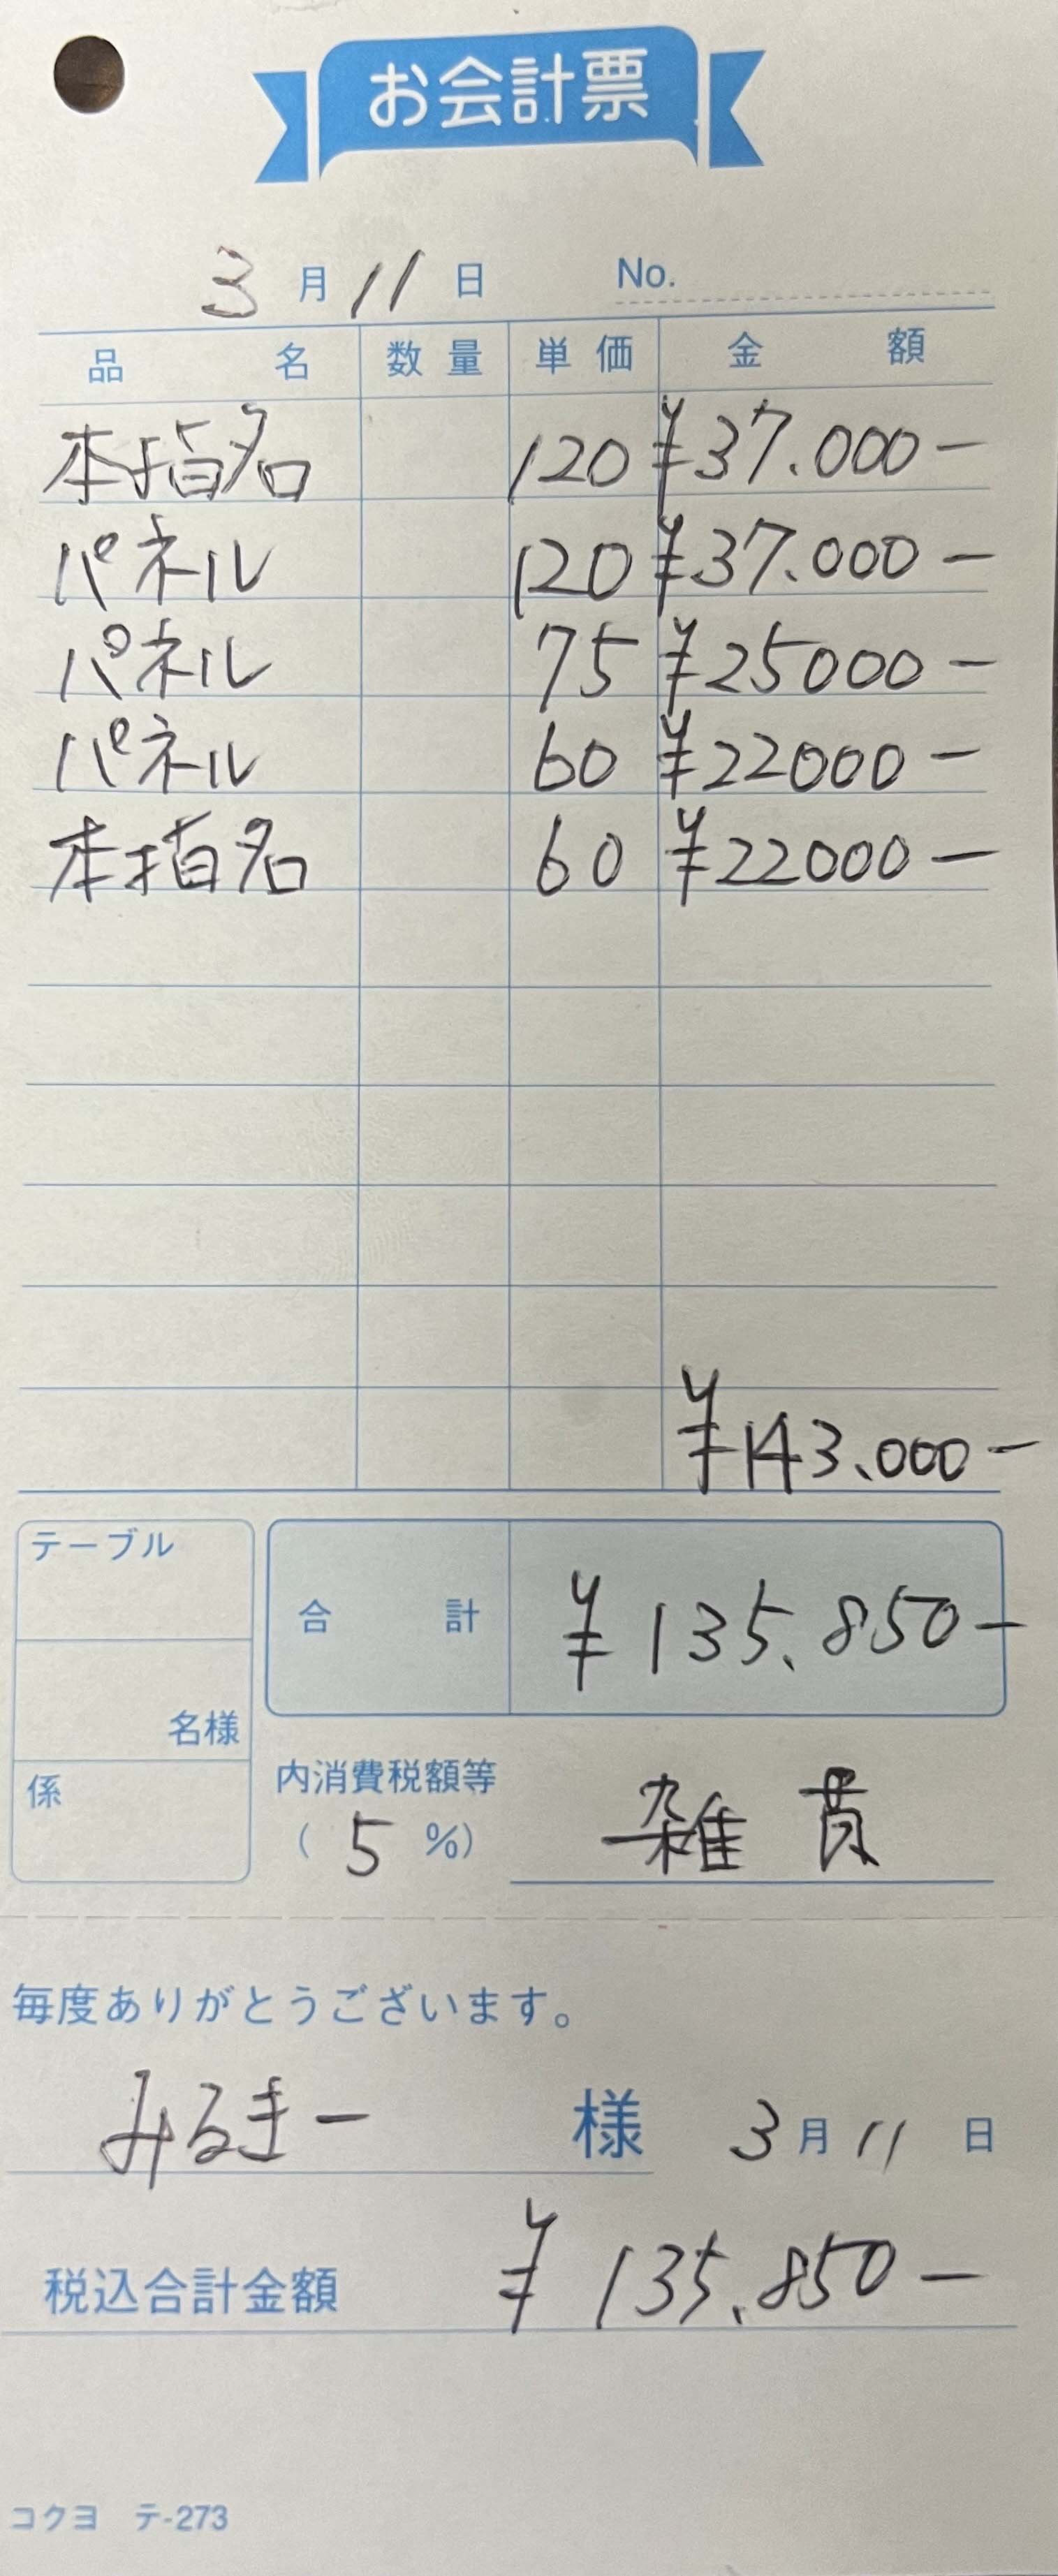 お会計票
3月11日 No.
品名 数量 単価 金額
本指名 120 ¥37.000-
パネル 120 ¥37.000-
パネル 75 ¥25000-
パネル 60 ¥22000-
本指名 60 ¥22000-
¥143.000-
テーブル
合計 ¥135.850-
名様
係
内消費税額等
(5%) 雑費
毎度ありがとうございます。
みるきー 様 3月11日
税込合計金額 ¥135.850-
コクヨ テ-273